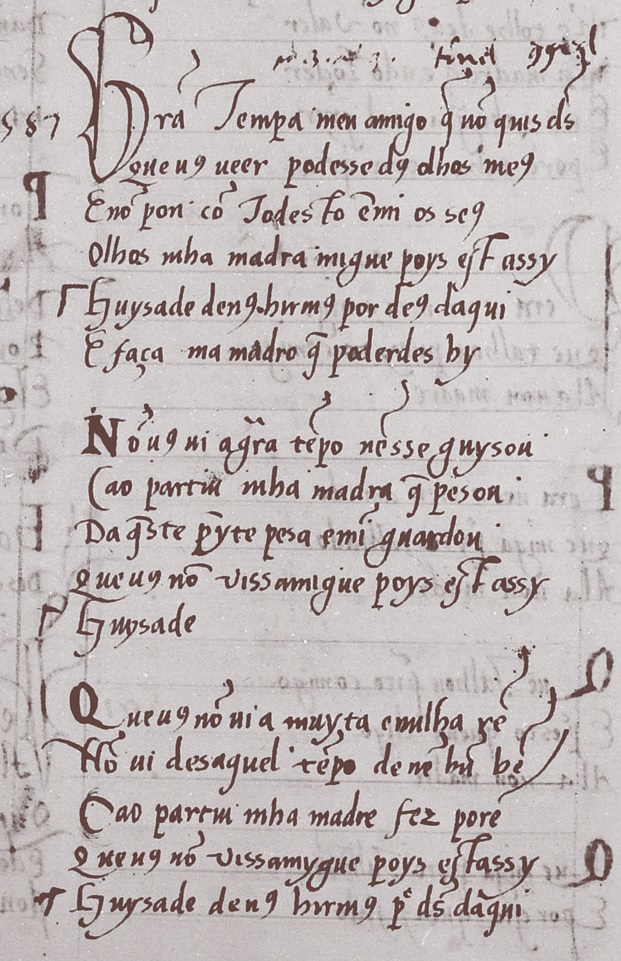 587
Gra Tempa meu amigo q̄ nō quis ds̄
Que uꝯ ueer podesse dꝯ olhos meꝯ
E nō pon cō Todesto ē mi os seꝯ
Olhos mha madra migue poys est assy
Guysade denꝯ hirmꝯ por deꝯ daqui
E faça ma madro q̄ poderdes hy
Nō uꝯ ui a gr̄a tēpo nē sse guysou
Ca o partiu mha madra q̄ pesou
Da q̄ste p̄yte pesa e mi guardou
Que uꝯ nō vissamigue poys est assy
Guysade
Que uꝯ nō ui a muyta e nulha rē
Nō ui desaquel tēpo de nē hū bē
Ca o partiu mha madre fez porē
Que uꝯ nō vissamygue poys est assy
Guysade denꝯ hirmꝯ p ds̄ daq̄ui